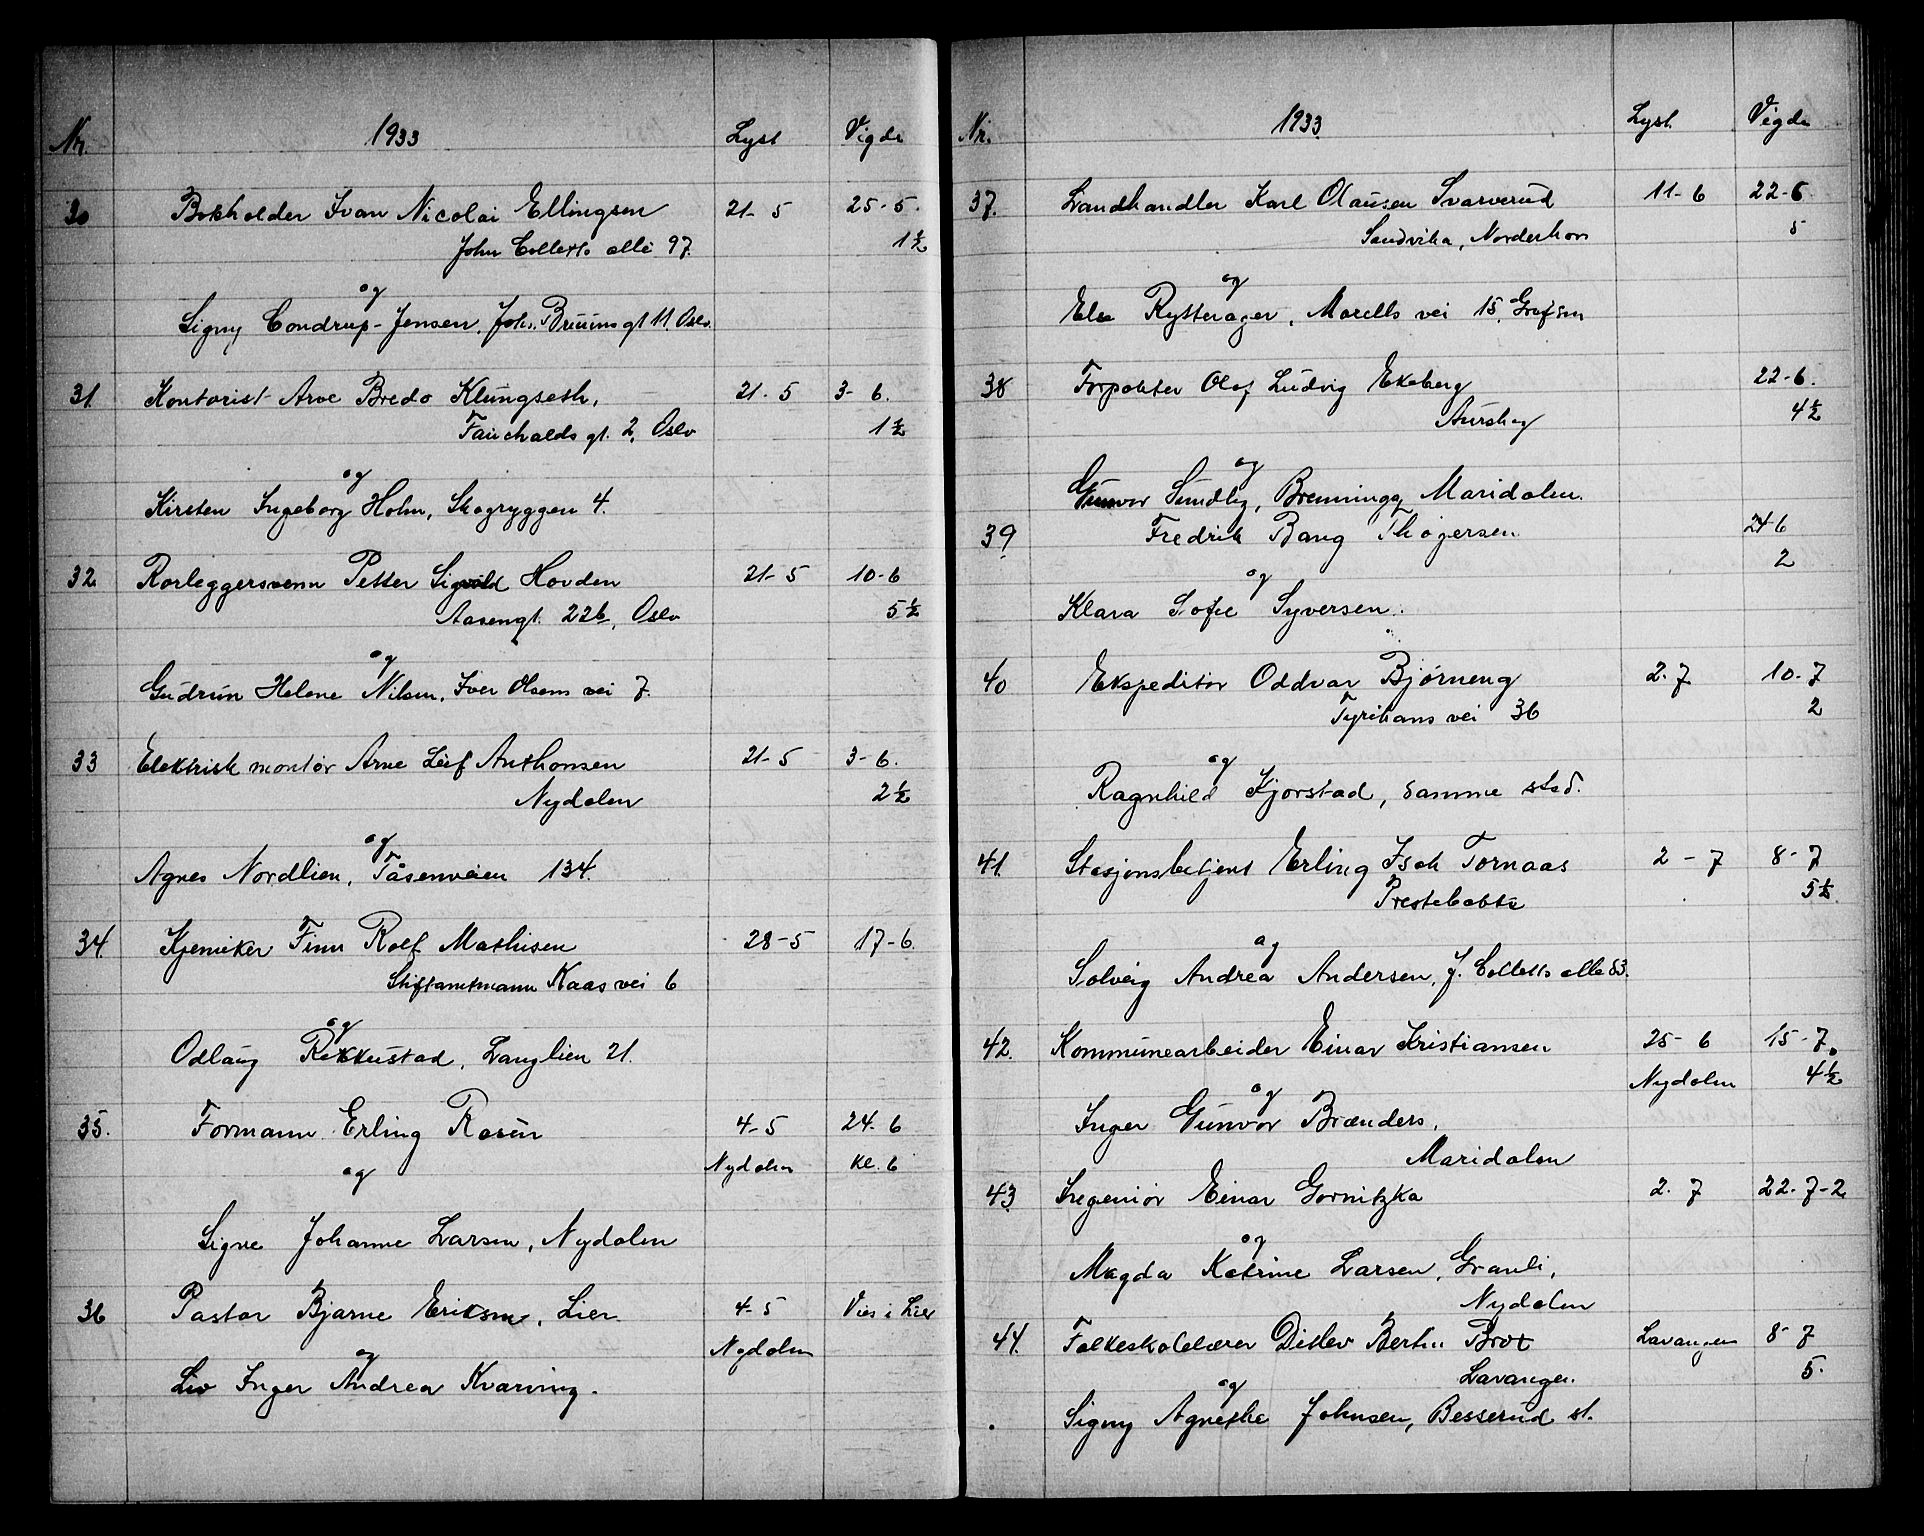 Nr. 1933 Lyst Vigde
30 Bokholder Ivar Nicolai Ellingsen 21-5 25-5.
John Colletts alle 97. 1½
og
Signy Condrup-Jensen, Joh. Bruuns gt 11 Oslo.
31. Kontorist Arve Bredo Klungseth, 21-5 3-6.
Fauchalds gt. 2, Oslo 1½
og
Kirsten Ingeborg Holm, Skogryggen 4.
32. Rørleggersvenn Petter Sigvald Hovden 21-5 10-6
Aasengt. 22b, Oslo 5½
og
Gudrun Helene Nilsen, Iver Olsens vei 7.
33 Elektrisk montør Arne Leif Anthonsen 21-5 3-6.
Nydalen 2½
og
Agnes Nordlien, Tåsenveien 134.
34. Kjemiker Finn Rolf Mathisen 28-5 17-6.
Stiftamtmann Kaas vei 6
og
Odlaug Rekkustad, Langlien 21.
35. Formann Erling Rosén 4-5 24-6
og Nydalen kl. 6
Signe Johanne Larsen, Nydalen
36 Pastor Bjarne Eriksen, Lier. 4-5 Vies i Lier
og Nydalen
Liv Inger Andrea Kvarving.
Nr. 1933 Lyst Vigde
37. Landhandler Karl Olausen Svarverud 11-6 22-6
Sandvika, Norderhov 5
og
Else Rytterager, Morells vei 15, Grefsen
38 Forpakter Olaf Ludvig Ekeberg 22-6.
Aurskog 4½
og
Gunvor Sundby, Brenningg Maridalen.
39 Fredrik Bang Thøgersen 24-6
2
og
Klara Sofie Syversen.
40 Ekspeditør Oddvar Bjørneng 2-7 10-7
Tyrihans vei 36 2
og
Ragnhild Kjørstad, samme sted.
41. Stasjonsbetjent Erling Isak Tornaas 2-7 8-7
Prestebakke 5½
og
Solveig Andrea Andersen, J. Colletts alle 83.
42. Kommunearbeider Einar Kristiansen 25-6 15-7
og Nydalen 4½
Inger Gunvor Brænders,
Maridalen
43 Ingeniør Einar Gornitzka 2-7 22-7-2
og
Magda Katrine Larsen, Granli,
Nydalen
44. Folkeskolelærer Ditlev Bertin Brox Lavangen 8-7
Lavangen. 5.
og
Signy Agnethe Johnsen, Besserud st.